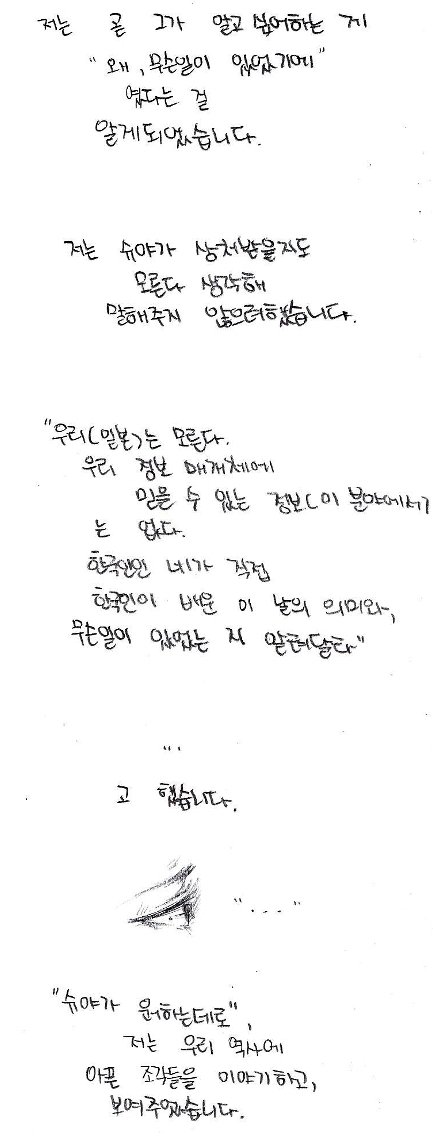 저는 곧 그가 알고 싶어하는 게
"왜, 무슨일이 있었기에"
였다는 걸
알게되었습니다.
저는 슈야가 상처받을지도
모른다 생각해
말해주지 않으려했습니다.
"우리(일본)는 모른다.
우리 정보 매개체에
믿을 수 있는 정보(이 분야에서)
는 없다.
한국인인 네가 직접
한국인이 배운 이 날의 의미와,
무슨일이 있었는 지 알려달라"
...
고 했습니다.
"..."
"슈야가 원하는데로",
저는 우리 역사에
아픈 조각들을 이야기하고,
보여주었습니다.